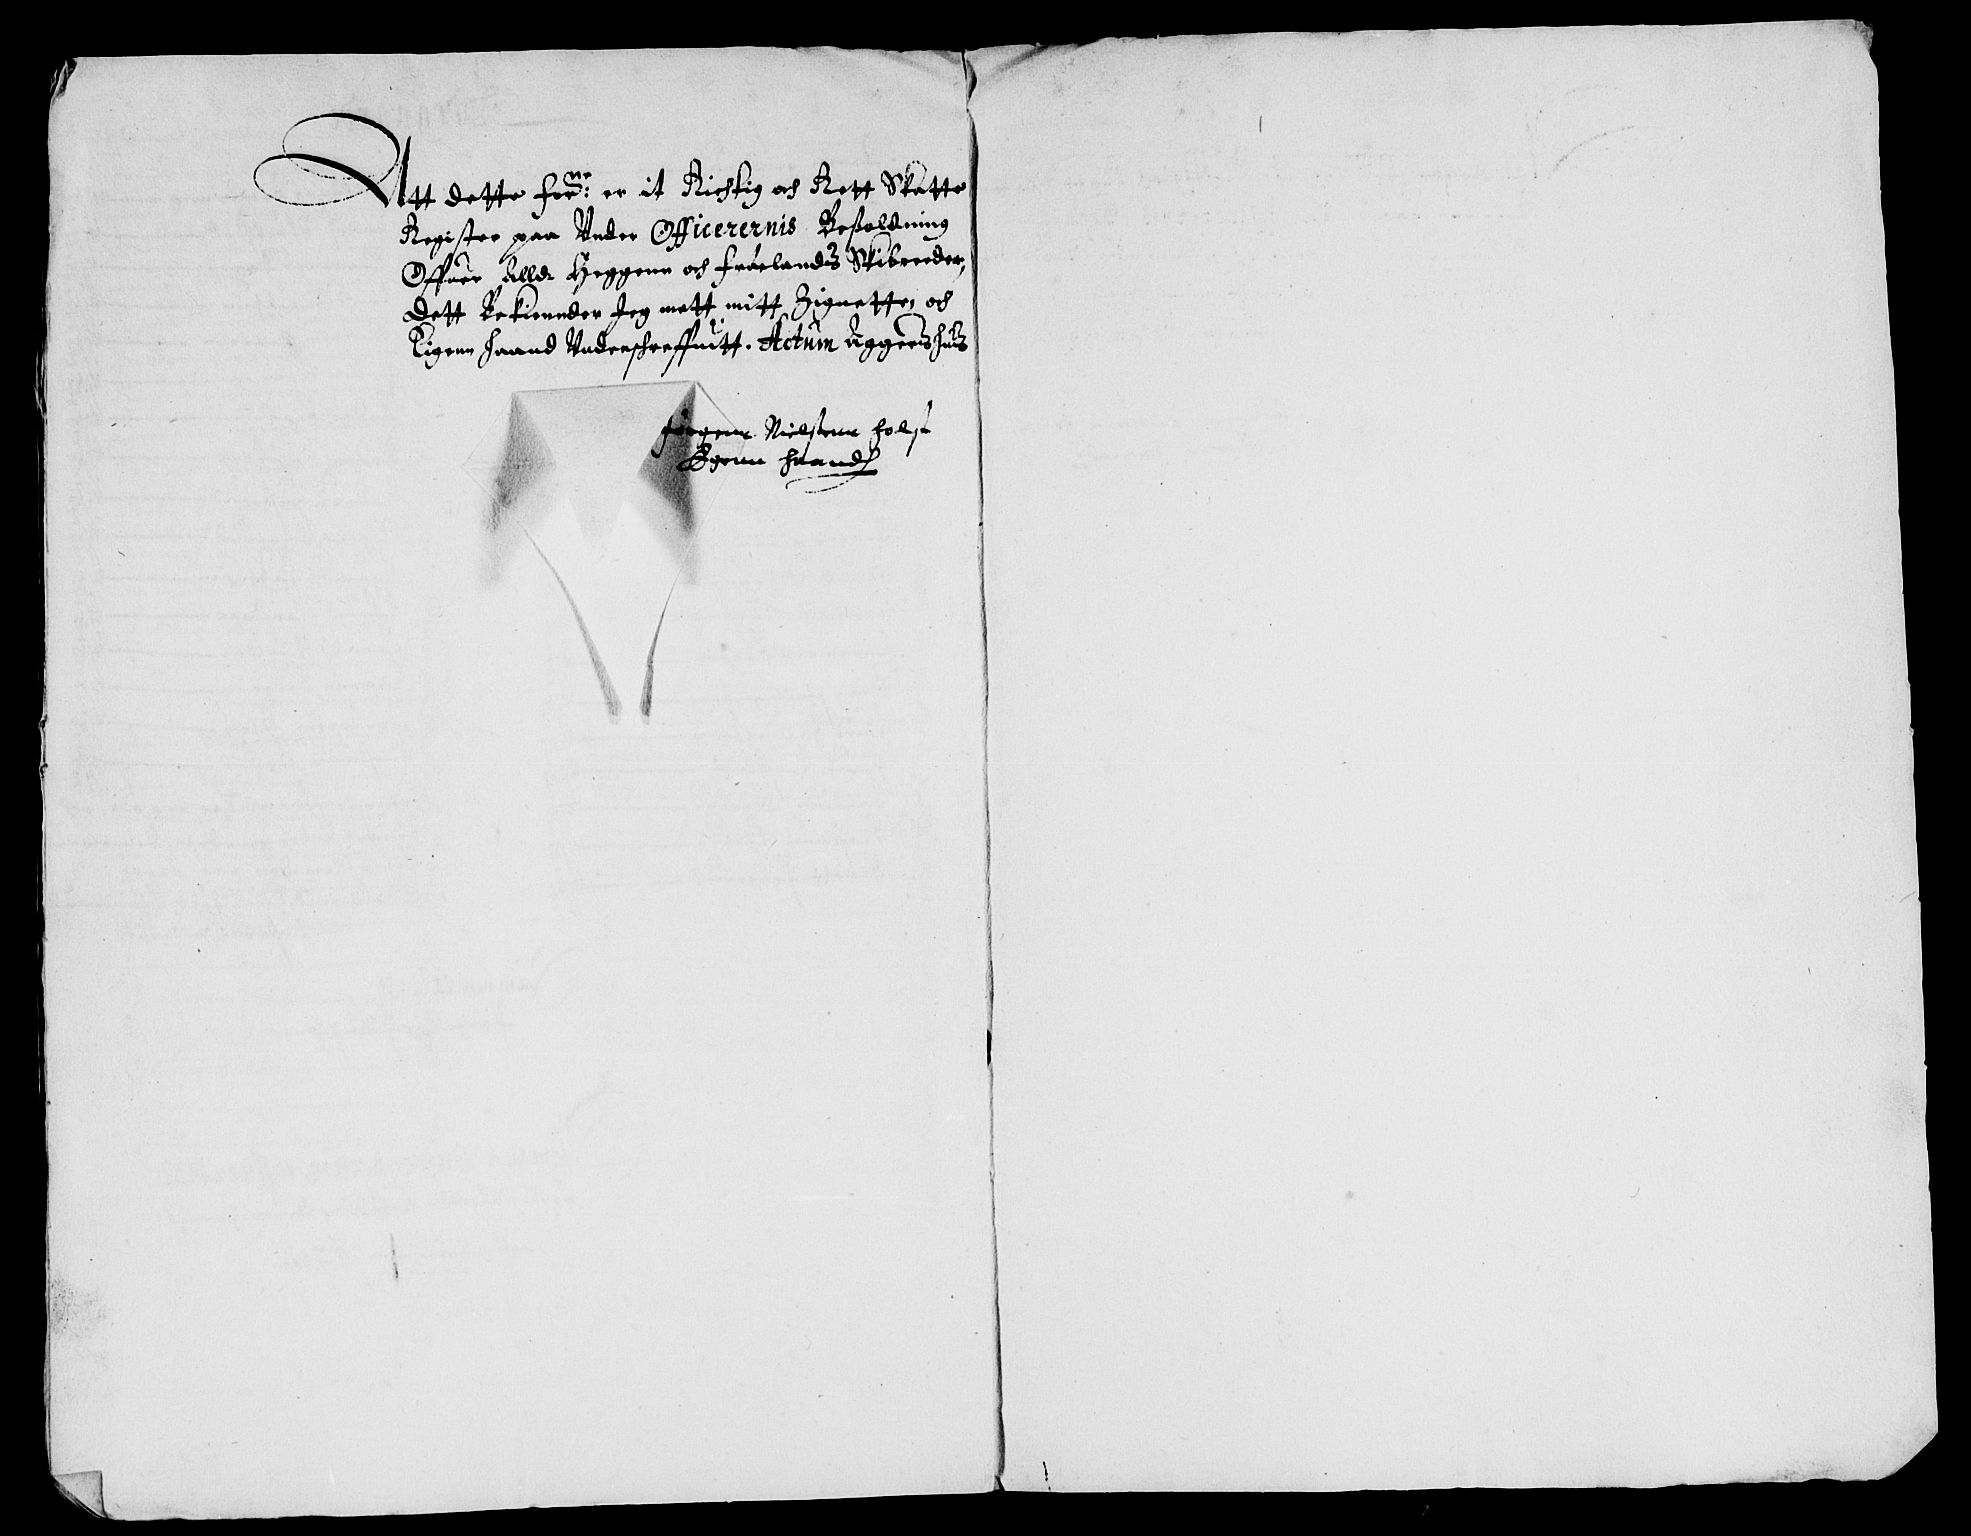 Att dette forne: er it Richtig och Rett Skatte
Register paa Vnder Officerernis Besoldning
Offuer Alld: Heggenn och Frøelands Skibreeder,
Dett Bekiennder Jeg mett mitt Zignette, och
Eigenn Haand Vnderschreffuitt. Actum Aggershuus
Jørgenn Nielsenn Holst
Egenn Haand